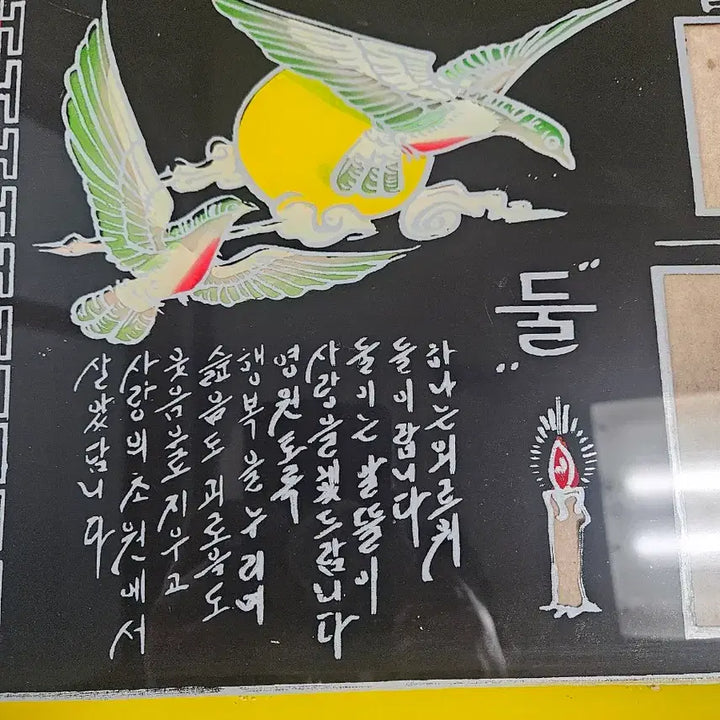 "둘"
하나는외로워
둘이랍니다
둘이는 알뜰이
사랑을했드랍니다
영원토록
행복을누리며
슲음도 괴로움도
웃음으로지우고
사랑의초원에서
살았답니다